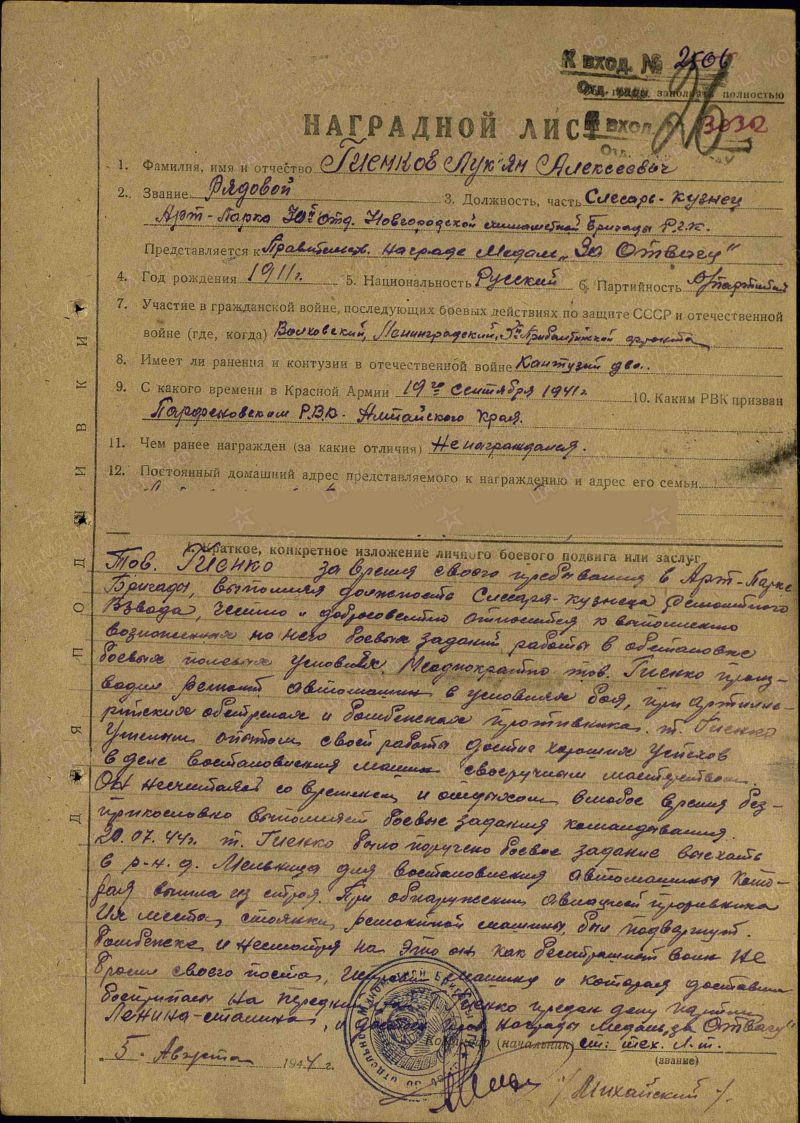 К ВХОД. № 2506
Отд. кадр.
заполнять полностью
26
К ВХОД. 3032
НАГРАДНОЙ ЛИСТ
1. Фамилия, имя и отчество Гиенков Лукьян Алексеевич
2. Звание Рядовой 3. Должность, часть Слесарь-кузнец
Арт-Парка 30й отд. Новгородской минометной Бригады Р.Г.К.
Представляется к Правительств. награде Медаль „За Отвагу"
4. Год рождения 1911 г. 5. Национальность Русский 6. Партийность б/партийный
7. Участие в гражданской войне, последующих боевых действиях по защите СССР и отечественной
войне (где, когда) Волховский, Ленинградский, 3й Прибалтийской фронта
8. Имеет ли ранения и контузии в отечественной войне Кантузий две.
9. С какого времени в Красной Армии 19го сентября 1941 г. 10. Каким РВК призван
Р.В.К. Алтайского края.
11. Чем ранее награжден (за какие отличия) Не награждался.
12. Постоянный домашний адрес представляемого к награждению и адрес его семьи
ДЛЯ ПОДШИВКИ
I. Краткое, конкретное изложение личного боевого подвига или заслуг
Тов. Гиенко за время своего пребывания в Арт-Парке
Бригады, выполняя должность Слесаря-кузнеца Ремонтного
Взвода, честно и добросовестно относится к выполнению
возложенных на него боевых заданий работы в обстановке
боевых полевых условиях. Неоднократно тов. Гиенко произ-
водил ремонт автомашин в условиях боя, при артилле-
рийских обстрелах и бомбежках противника. т. Гиенко
Умелым опытом своей работы достиг хороших успехов
в деле востановления машин своеручным мастерством.
Он несчитаясь со временем и отдыхом влюбое время без-
прикословно выполняет боевые задания командывания.
20.07.44г. т. Гиенко было поручено боевое задание выехать
в р-н. д. Мельница для востановления автомашины Кото-
рая вышла из строя. При обнаружении авиацией противника
Их места стоянки, ремонтной машины, был подвергнут
бомбежке и несмотря на это он как бесстрашный воин не
бросил своего поста, машину и которая доставила
боеприпасы на передний Гиенко предан делу партии
Ленина-Сталина, и достоин награды Медаль „за Отвагу"
Командир (начальник) ст. тех. л-т.
(звание)
5. Августа 1944 г.
/Михайский/